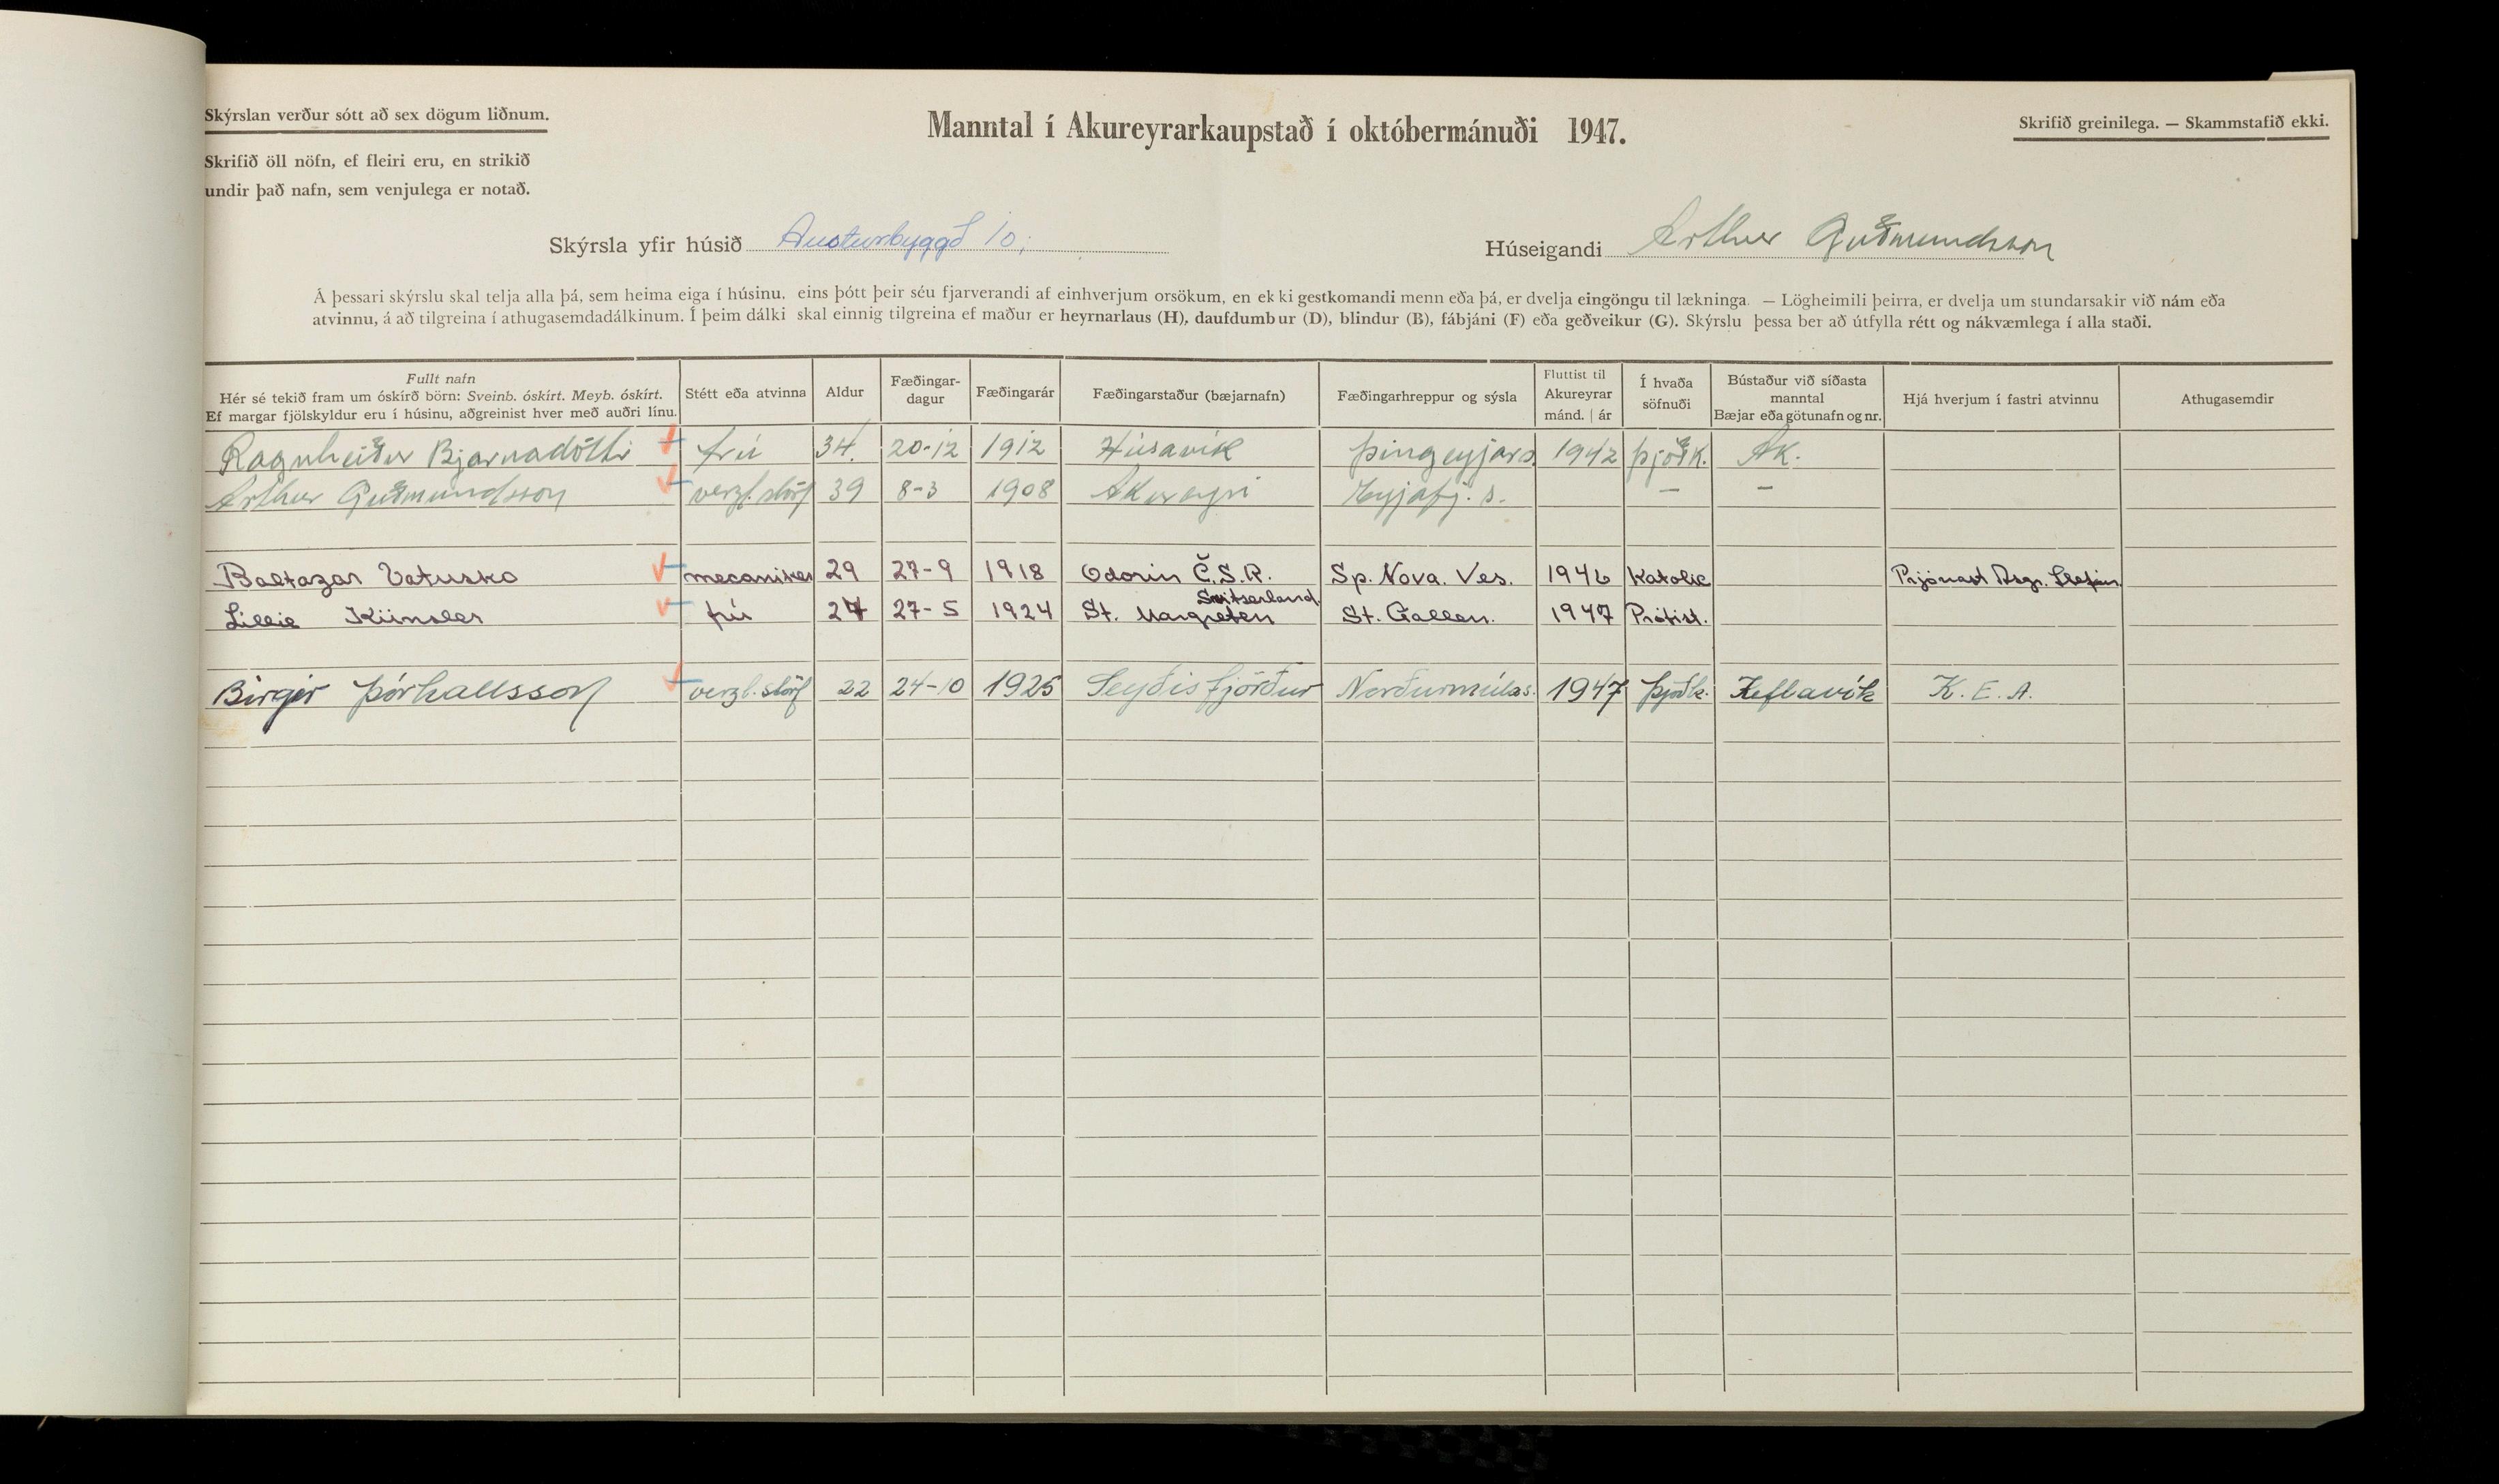 Skýrslan verður sótt að sex dögum liðnum.
Manntal í Akureyrarkaupstað í októbermánuði 1947.
Skrifið greinilega. — Skammstafið ekki.
Skrifið öll nöfn, ef fleiri eru, en strikið
undir það nafn, sem venjulega er notað.
Skýrsla yfir húsið Austurbyggð 10,
Húseigandi Arthur Guðmundsson
Á þessari skýrslu skal telja alla þá, sem heima eiga í húsinu, eins þótt þeir séu fjarverandi af einhverjum orsökum, en ekki gestkomandi menn eða þá, er dvelja eingöngu til lækninga. — Lögheimili þeirra, er dvelja um stundarsakir við nám eða
atvinnu, á að tilgreina í athugasemdadálkinum. Í þeim dálki skal einnig tilgreina ef maður er heyrnarlaus (H), daufdumbur (D), blindur (B), fábjáni (F) eða geðveikur (G). Skýrslu þessa ber að útfylla rétt og nákvæmlega í alla staði.
Fullt nafn
Hér sé tekið fram um óskírð börn: Sveinb. óskírt. Meyb. óskírt.
Ef margar fjölskyldur eru í húsinu, aðgreinist hver með auðri línu.
Stétt eða atvinna
Aldur
Fæðingar-
dagur
Fæðingarár
Fæðingarstaður (bæjarnafn)
Fæðingarhreppur og sýsla
Fluttist til
Akureyrar
mánd. | ár
Í hvaða
söfnuði
Bústaður við síðasta
manntal
Bæjar eða götunafn og nr.
Hjá hverjum í fastri atvinnu
Athugasemdir
Ragnheiður Bjarnadóttir frú 34. 20-12 1912 Húsavík Þingeyjars. 1942 þjóðk. Ak.
Arthur Guðmundsson verzl.störf 39 8-3 1908 Akureyri Eyjafj. s. — —
Baltazar Vatusko mecaniker 29 27-9 1918 Odorin Č.S.R. Sp. Nova. Ves. 1946 Katolic Prjónast Asgr. Stefáns
Lillie Künsler frú 24 27-5 1924 St. Margreten Switserland St. Gallen. 1947 Prótist.
Birgir Þórhallsson verzl.störf 22 24-10 1925 Seyðisfjörður Norðurmúlas. 1947 þjóðk. Keflavík K.E.A.